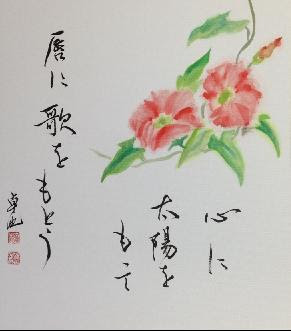 心に
太陽を
もて
唇に歌をもとう